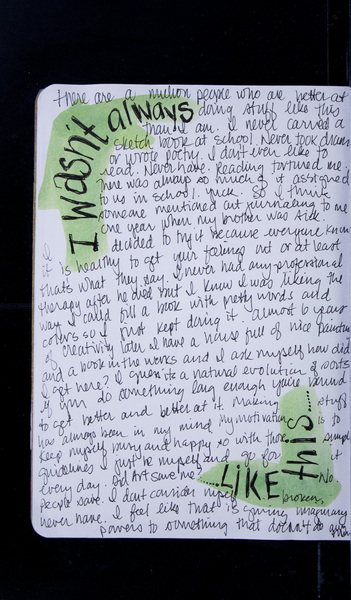 I wasn't always
there are a million people who are better at
doing stuff like this
than I am. I never carried a
sketch book at school. Never took drama
or wrote poetry. I don't even like to
read. Never have. Reading tortured me.
There was always so much of it assigned
to us in school. yuck. So I think
someone mentioned art journaling to me
one year when my brother was sick.
I decided to try it because everyone knows
it is healthy to get your feelings out or at least
thats what they say. I never had any professional
therapy after he died but I knew I was liking the
way I could fill a book with pretty words and
colors so I just kept doing it. Almost 6 years
of creativity later I have a house full of nice paintings
and a book in the works and I ask myself how did
I get here? I guess its a natural evolution of sorts.
If you do something long enough you're bound
to get better and better at it. Making stuff
has always been in my mind. My motivation is to
keep myself busy and happy so with those simple
guidelines I just be myself and go for it
every day. Did Art save me? No
people save. I don't consider myself broken,
never have. I feel like that is giving imaginary
powers to something that doesn't
.....LIKE this.....